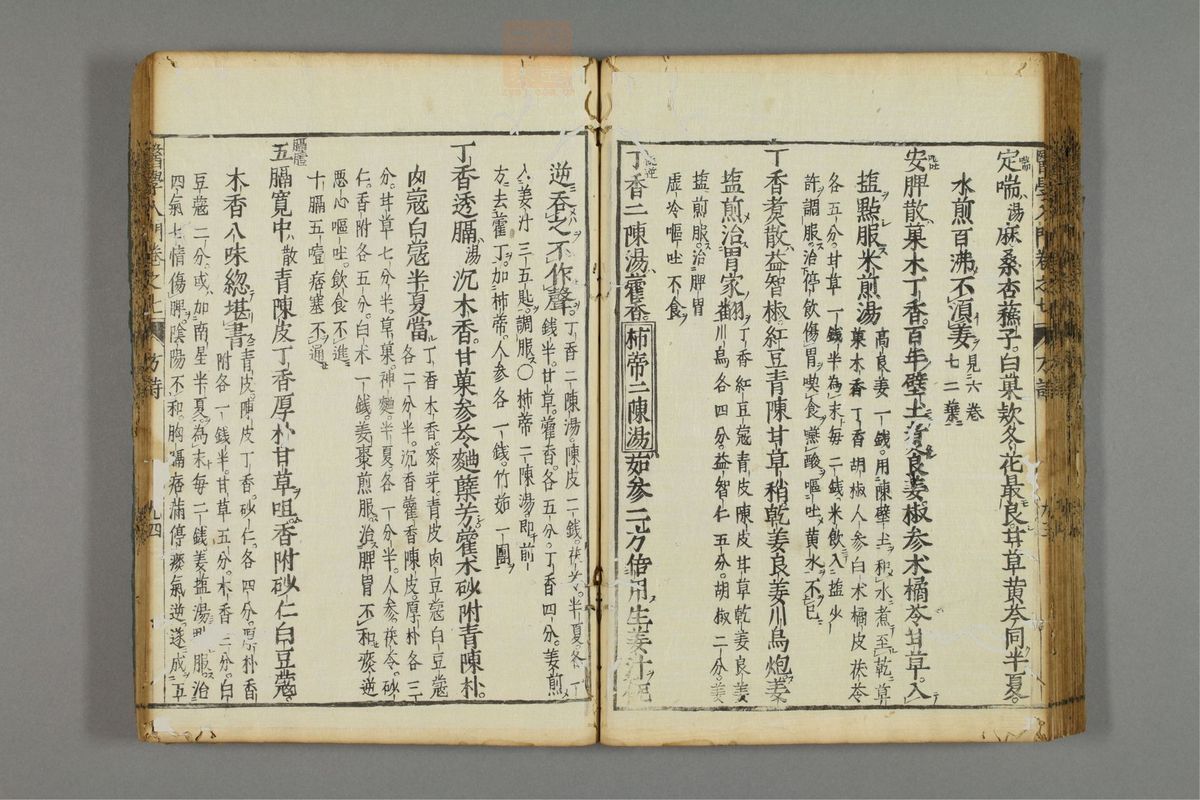 定喘湯麻桑杏蘓子白菓欵冬花最良甘草黄芩同半夏
水煎百沸不湏姜見六卷七二葉
安脾散菓木丁香百年壁土有良姜椒参术橘苓甘草入
塩㸃服米煎湯高良姜一錢用陳壁土和水煮至乾草
菓木香丁香胡椒人参白术橘皮茯苓
各五分甘草一錢半為末每二錢米飲入塩少
許調服治停飲傷胃喫食㗜酸嘔吐黄水不已
丁香煑散益智椒紅豆青陳甘草稍乾姜良姜川烏炮姜
塩煎治胃家翻丁香紅豆蔻青皮陳皮甘草乾姜良姜
川烏各四分益智仁五分胡椒二分姜
塩煎服治脾胃
虚冷嘔吐不食
丁香二陳湯藿香柿帝二陳湯茹参二方俻用生姜汁
逆吞之不作聲丁香二陳湯陳皮二錢茯苓半夏各一
錢半甘草藿香各五分丁香四分姜煎
入姜汁三五匙調服〇柿帝二陳湯即前
方去藿丁加柿帝人参各一錢竹茹一團
丁香透膈湯沉木香甘菓参苓麯蘗芳藿术砂附青陳朴
肉蔻白蔻半夏當丁香木香麥芽青皮肉豆蔻白豆蔻
各二分半沉香藿香陳皮厚朴各三
分甘草七分半草菓神麯半夏各一分半人参茯苓砂
仁香附各五分白术一錢姜棗煎服治脾胃不和痰逆
惡心嘔吐飲食不進
十膈五噎痞塞不通
五膈寛中散青陳皮丁香厚朴甘草咀香附砂仁白豆蔻
木香八味緫堪書青皮陳皮丁香砂仁各四分厚朴香
附各一錢半甘草五分木香三分白
豆蔻二分或加南星半夏為末每二錢姜塩湯㸃服治
四氣七情傷脾陰陽不和胸膈痞滿停痰氣逆遂成五
醫學入門卷之七
方詩
九四